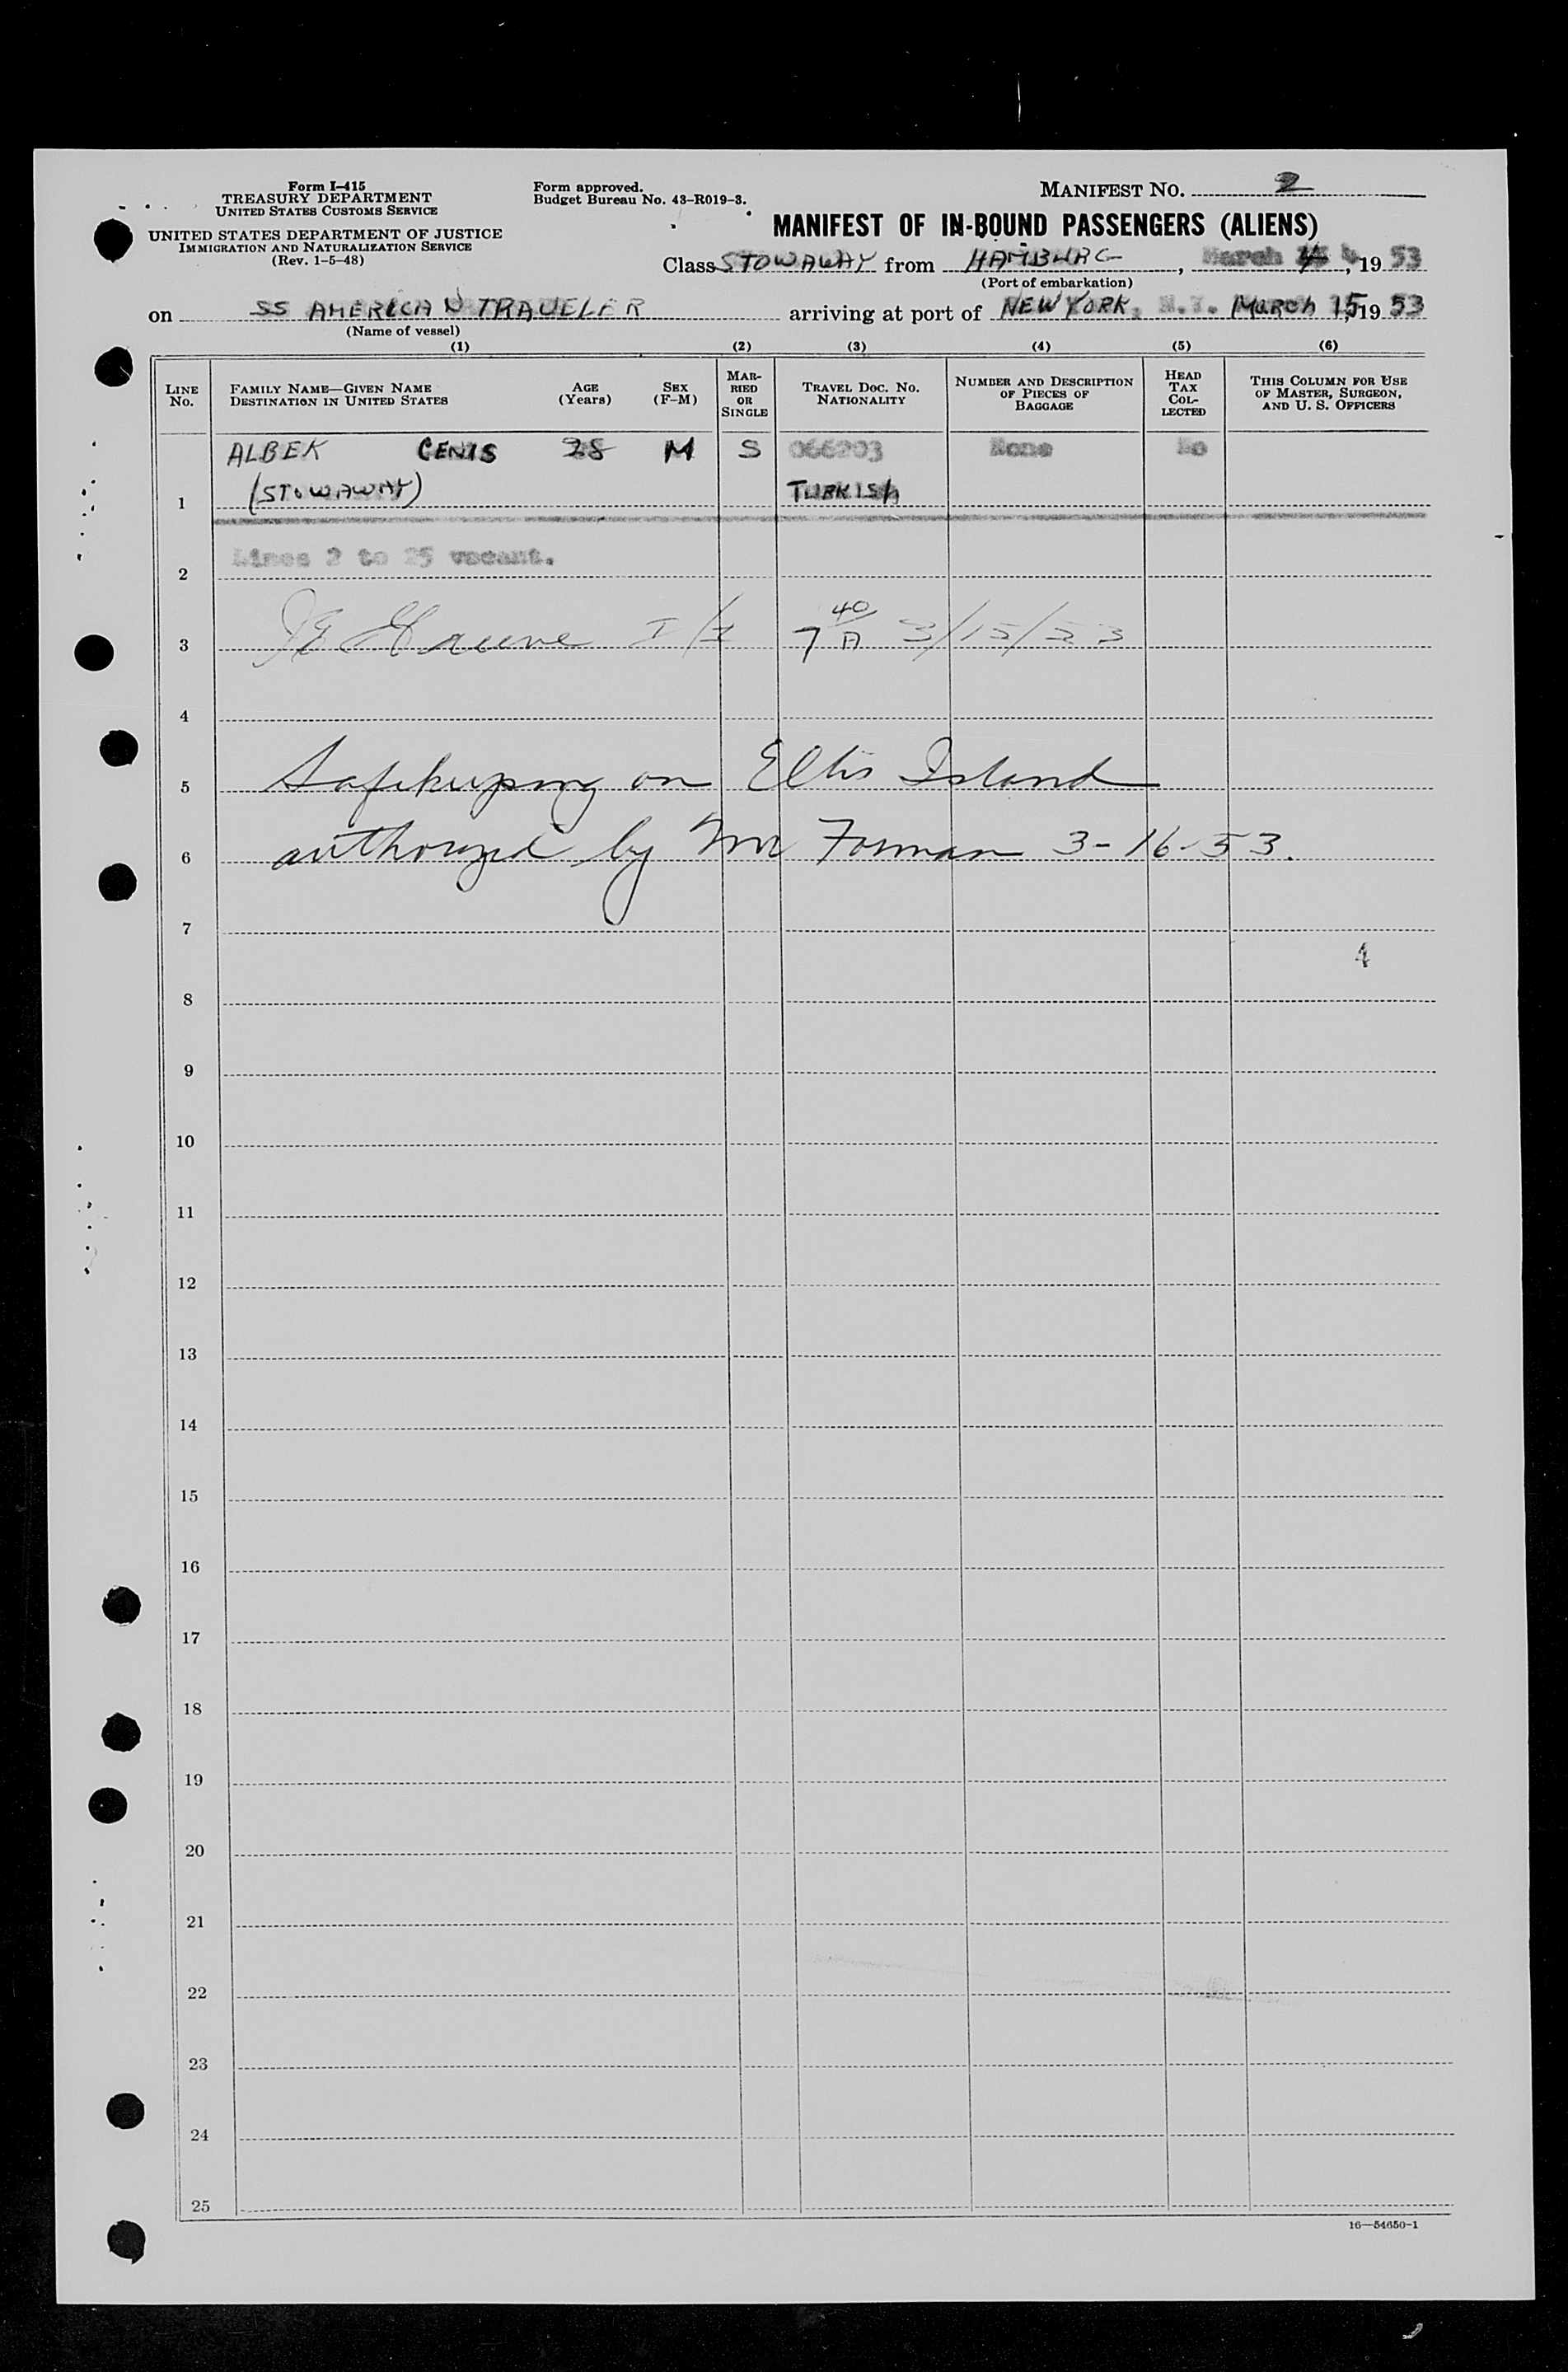 Form I-415
TREASURY DEPARTMENT
UNITED STATES CUSTOMS SERVICE
UNITED STATES DEPARTMENT OF JUSTICE
IMMIGRATION AND NATURALIZATION SERVICE
(Rev. 1-5-48)
Form approved.
Budget Bureau No. 43-R019-3.
MANIFEST NO. 2
MANIFEST OF IN-BOUND PASSENGERS (ALIENS)
Class STOWAWAY from HAMBURG, March 4, 19 53
(Port of embarkation)
on SS AMERICAN TRAVELER arriving at port of NEW YORK, N.Y. March 15, 19 53
(Name of vessel)
(1) (2) (3) (4) (5) (6)
LINE NO.
FAMILY NAME—GIVEN NAME
DESTINATION IN UNITED STATES
AGE (Years)
SEX (F-M)
MARRIED OR SINGLE
TRAVEL DOC. NO.
NATIONALITY
NUMBER AND DESCRIPTION OF PIECES OF BAGGAGE
HEAD TAX COLLECTED
THIS COLUMN FOR USE OF MASTER, SURGEON, AND U. S. OFFICERS
ALBEK CENIS 28 M S 066203 None No
1 (STOWAWAY) TURKISH
2 Lines 2 to 25 vacant.
3 7 40 A 3/15/53
4
5 Safekeeping on Ellis Island
6 authorized by Mr Forman 3-16-53.
7
4
8
9
10
11
12
13
14
15
16
17
18
19
20
21
22
23
24
25
16—54650-1